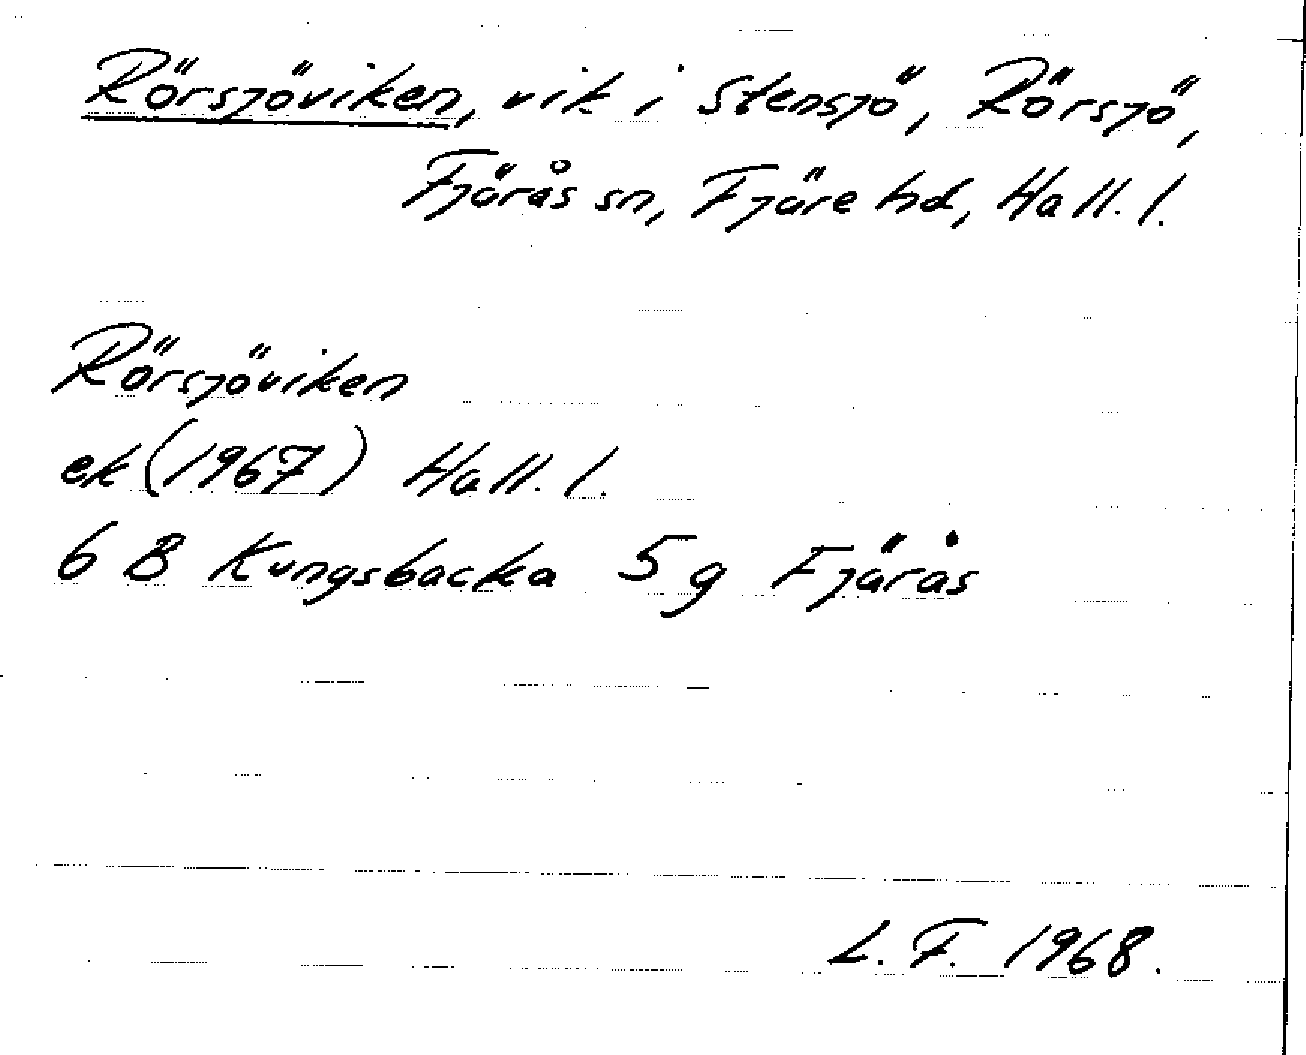 Rörsjöviken, vik i Stensjö, Rörsjö,
Fjärås sn, Fjäre hd, Hall. l.
Rörsjöviken
ek (1967) Hall. l.
6 B Kungsbacka 5 g Fjärås
L. F. 1968.